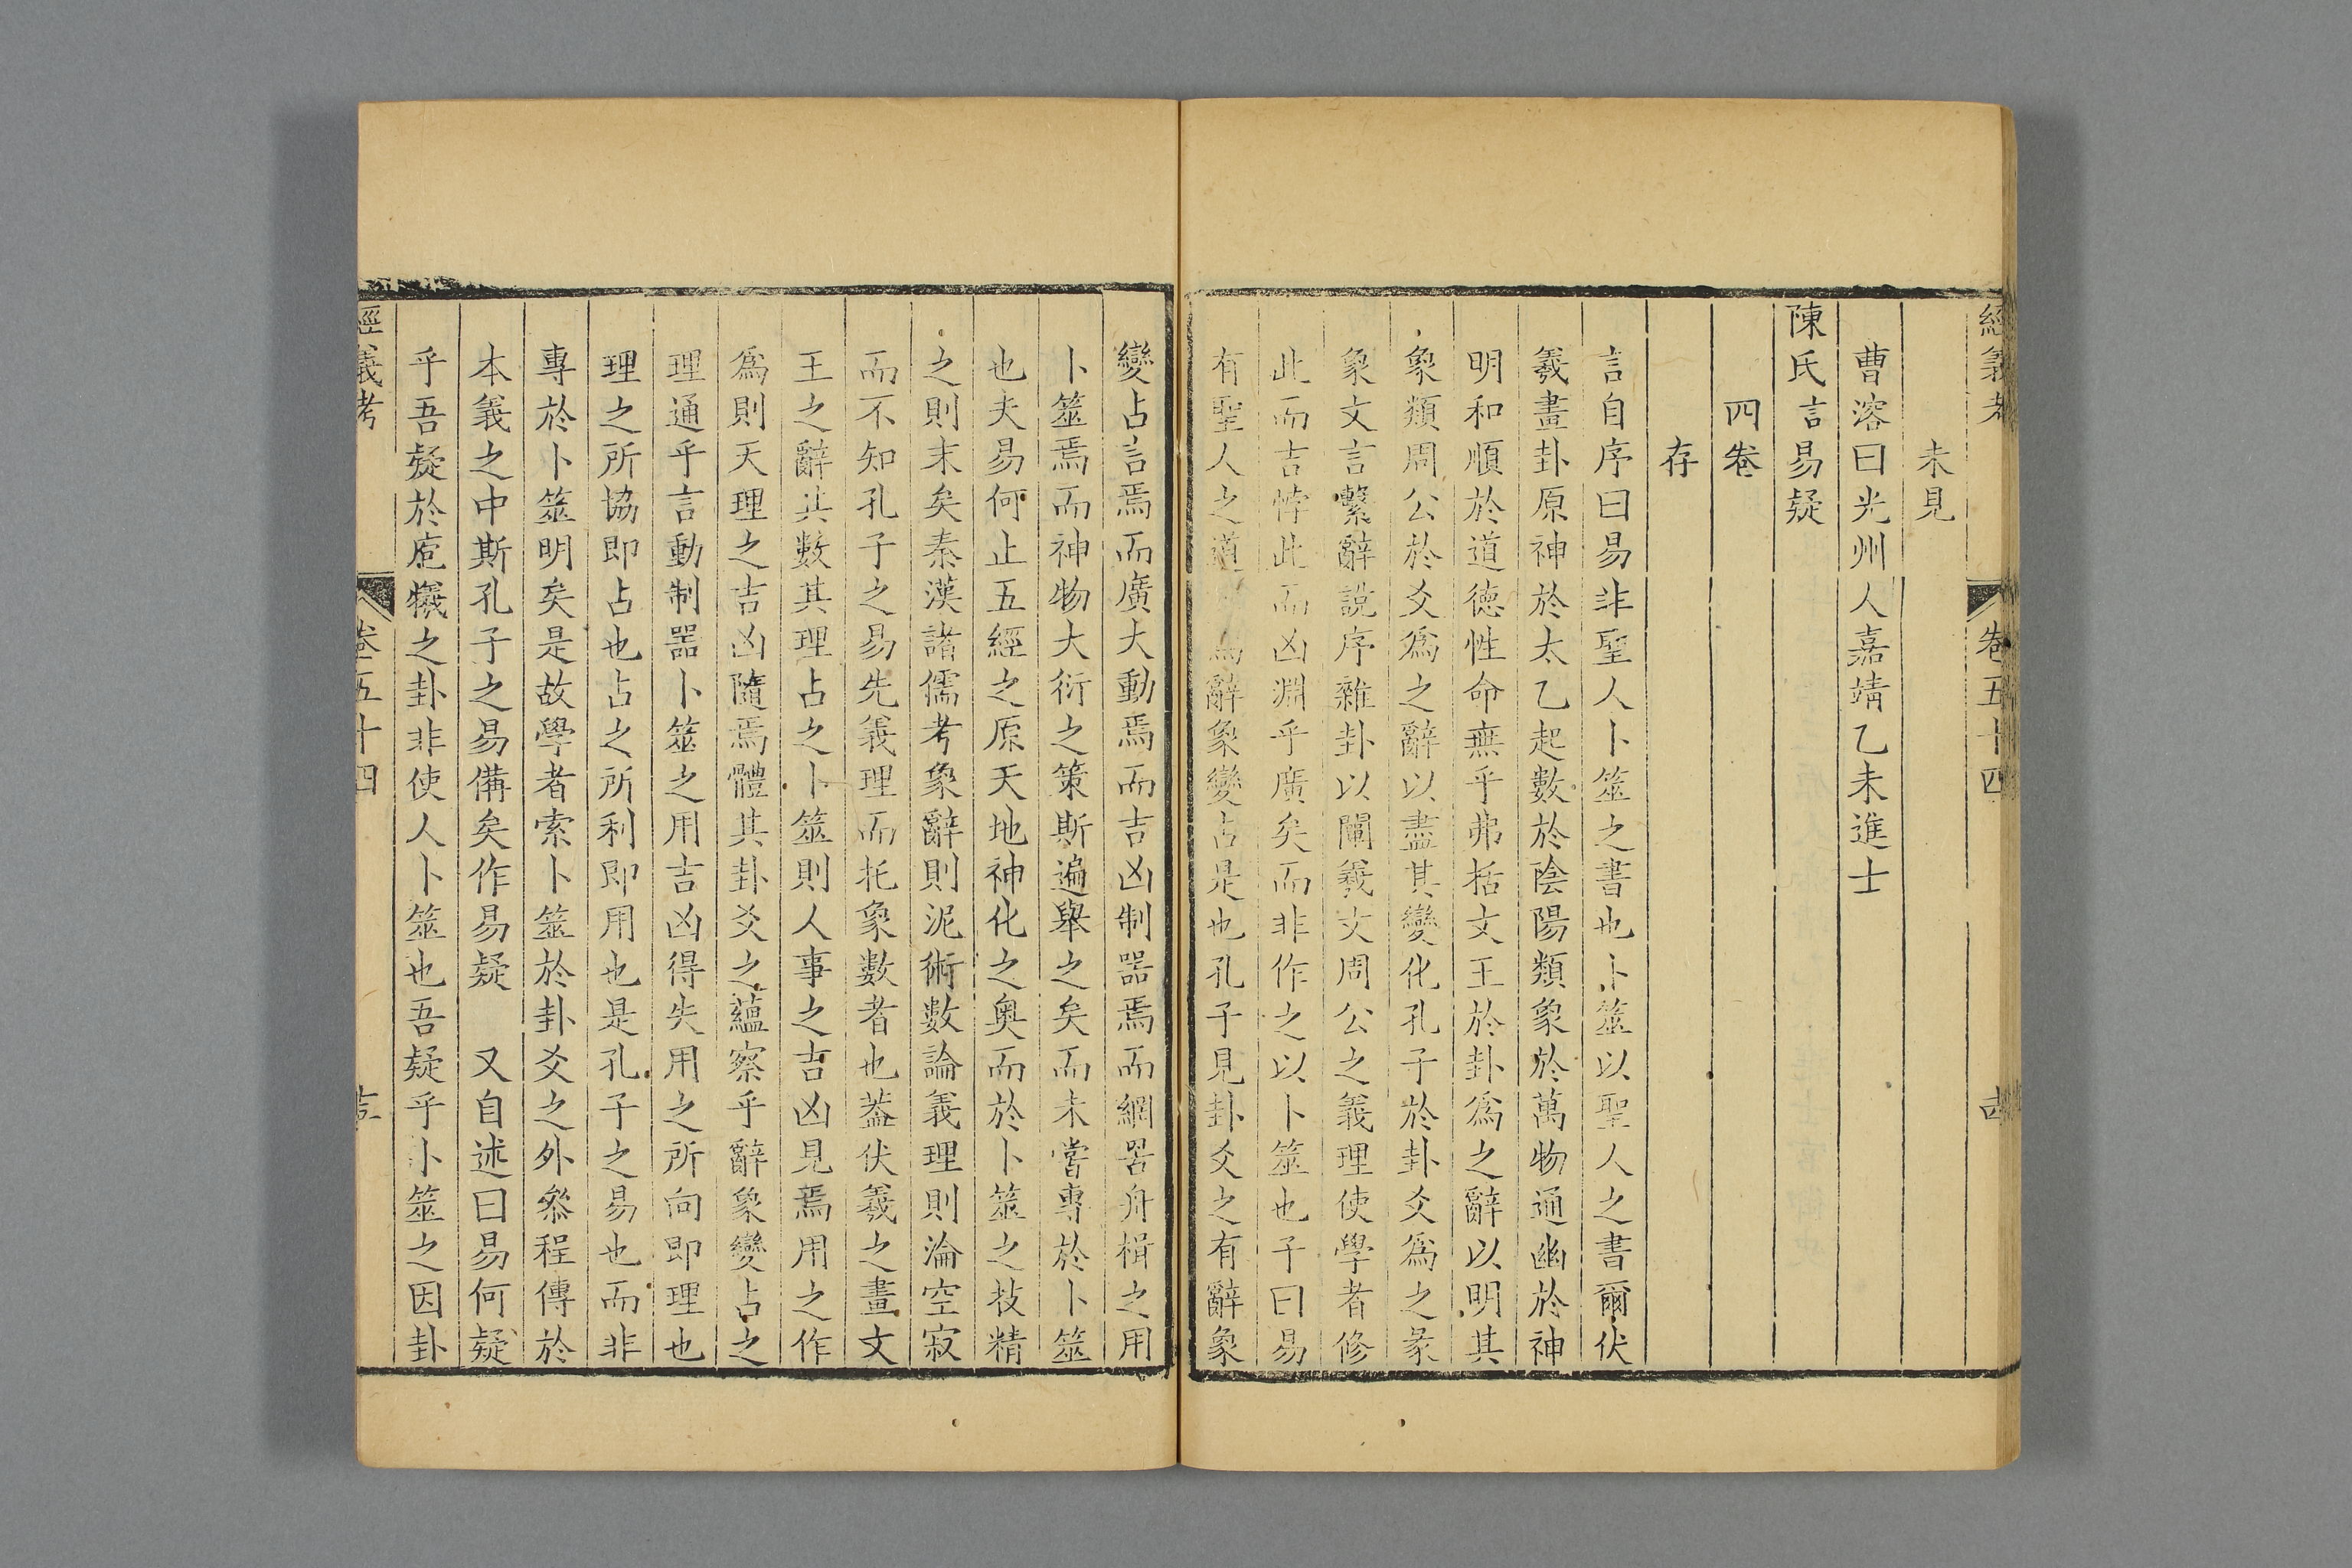 經義考
卷五十四
未見
曹溶曰光州人嘉靖乙未進士
陳氏言易疑
四卷
存
言自序曰易非聖人卜筮之書也卜筮以聖人之書爾伏
羲畫卦原神於太乙起數於陰陽類象於萬物通幽於神
明和順於道德性命無乎弗括文王於卦爲之辭以明其
象類周公於爻爲之辭以盡其變化孔子於卦爻爲之彖
象文言繫辭說序雜卦以闡羲文周公之義理使學者修
此而吉悖此而凶淵乎廣矣而非作之以卜筮也子曰易
有聖人之道 焉辭象變占是也孔子見卦爻之有辭象
變占言焉而廣大動焉而吉凶制噐焉而網罟舟楫之用
卜筮焉而神物大衍之策斯遍舉之矣而未嘗專於卜筮
也夫易何止五經之原天地神化之奧而於卜筮之技精
之則末矣秦漢諸儒考象辭則泥術數論義理則淪空寂
而不知孔子之易先義理而托象數者也葢伏羲之畫文
王之辭其數其理占之卜筮則人事之吉凶見焉用之作
爲則天理之吉凶隨焉體其卦爻之蘊察乎辭象變占之
理通乎言動制噐卜筮之用吉凶得失用之所向即理也
理之所協即占也占之所利即用也是孔子之易也而非
專於卜筮明矣是故學者索卜筮於卦爻之外叅程傳於
本義之中斯孔子之易備矣作易疑　又自述曰易何疑
乎吾疑於庖犧之卦非使人卜筮也吾疑乎卜筮之因卦
經義考
卷五十四